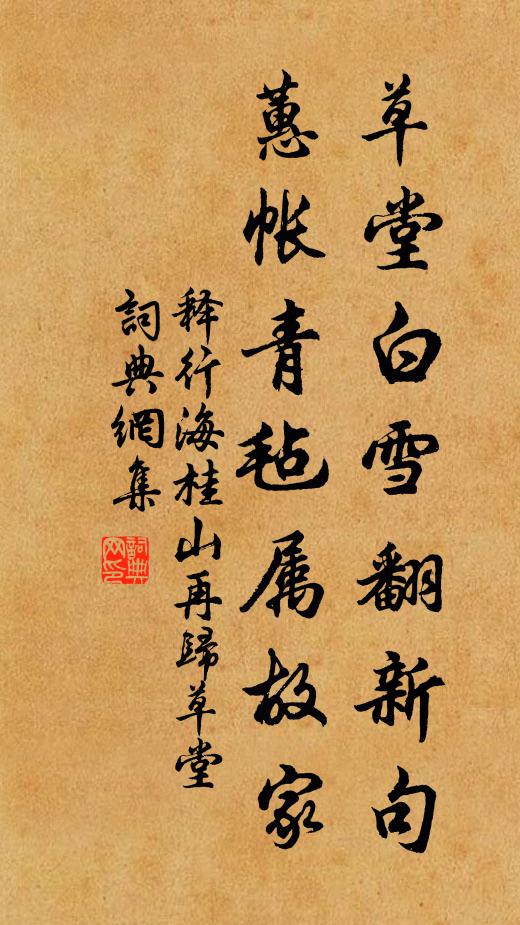 草堂白雪翻新句
蕙帐青毡属故家
释行海桂山再歸草堂
詞典網集
詞典网印